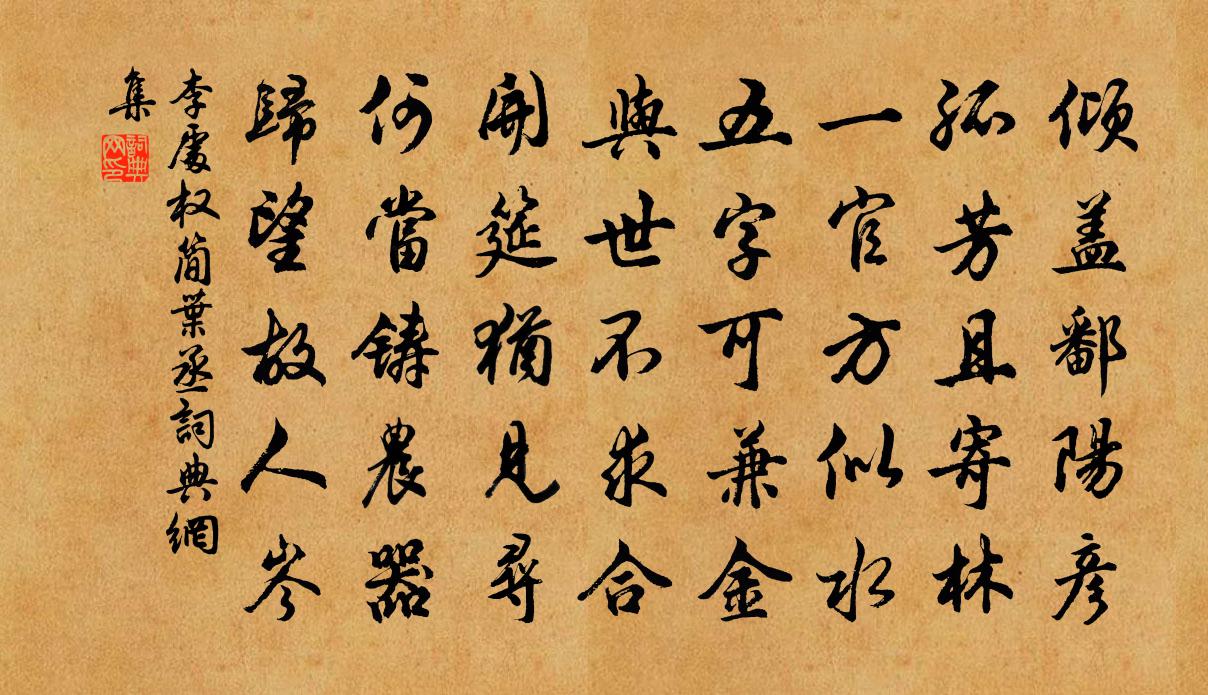 倾盖鄱陽彦
孤芳且寄林
一官方似水
五字可兼金
與世不求合
開筵猶見尋
何當鑄農器
歸望故人岑
李處权簡葉丞詞典網
集
詞典
网印